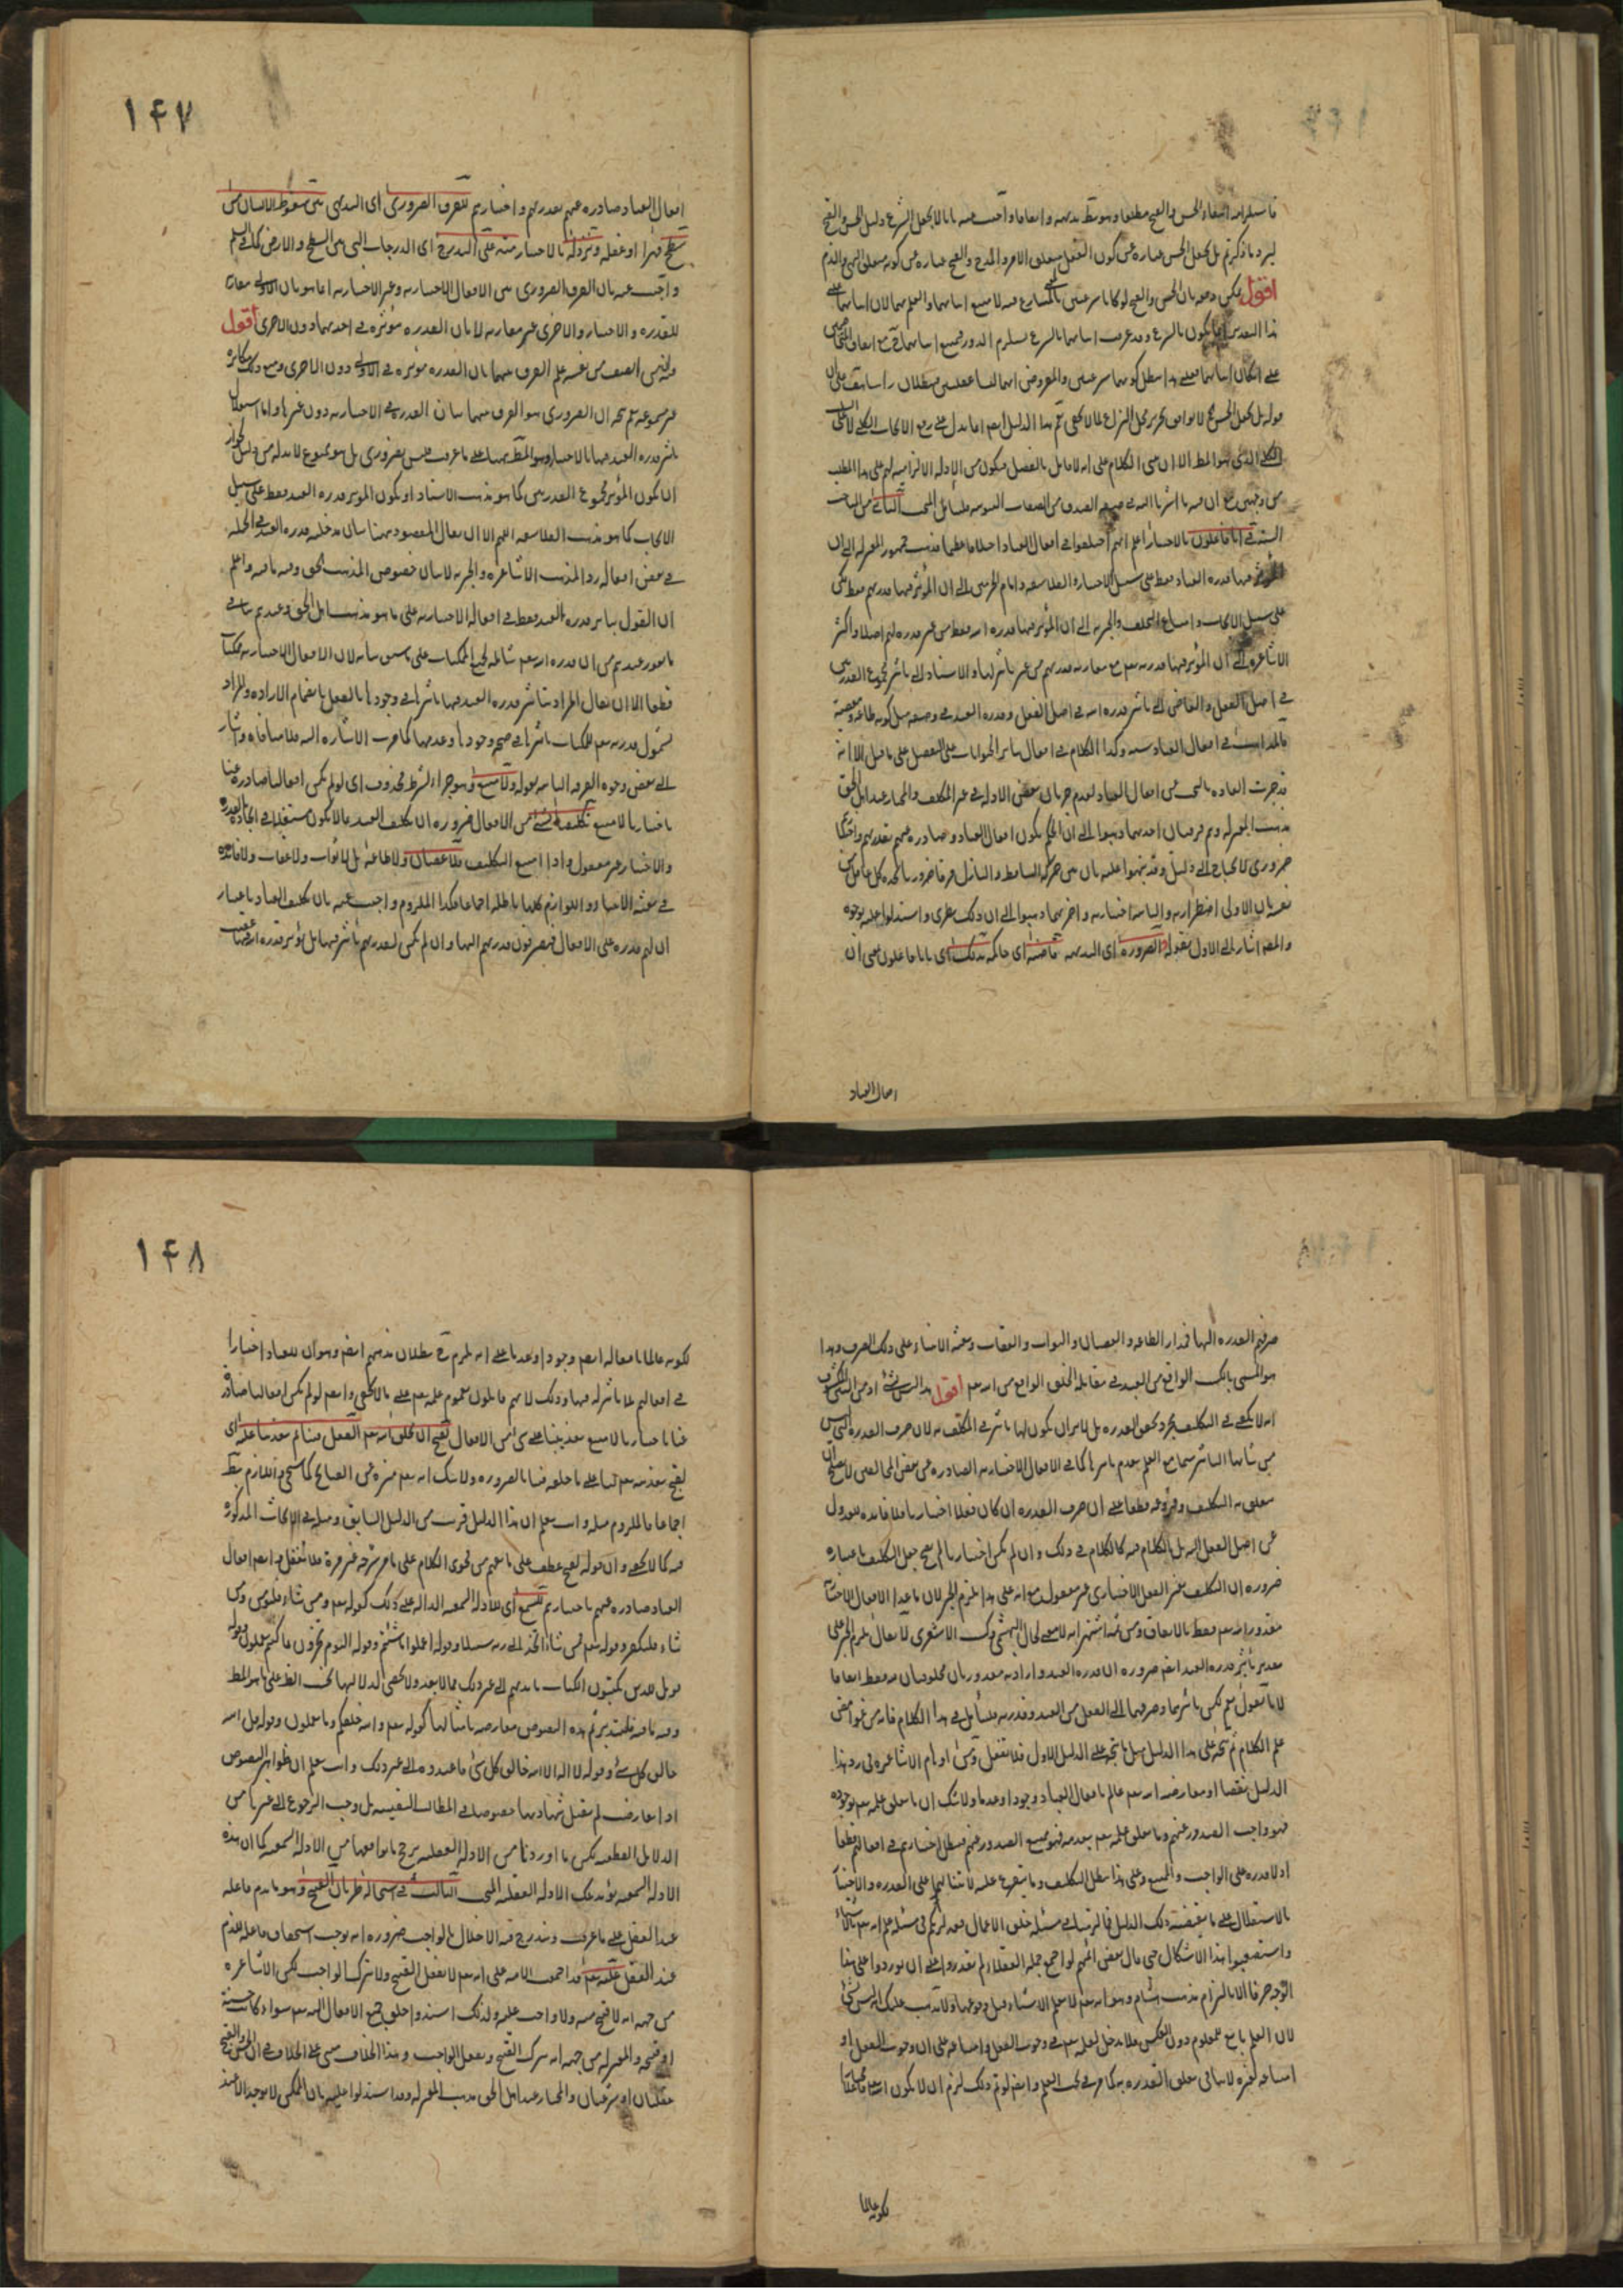 فاستلزامه انتفاء الحسن والقبح مطلقا
يرد ما ذكرتم بل نجعل الحسن عبارة عن كون الفعل متعلق الامر والمدح والقبح عبارة عن كونه متعلق النهى والذم
اقول يمكن دفعه بان الحسن والقبح لو كانا شرعيين
هذا التقدير انما يكون بالشرع
على امكان اثباتهما فعلى هذا يبطل كونهما شرعيين
قوله بل نجعل الحسن
الكلى الذى هو المط الا ان يبنى الكلام على انه لا قائل بالفصل فيكون من الادلة الالزامية لهم على هذا المطلب
من وجهين مع ان فيه ما اشرنا اليه
فى انا فاعلون بالاختيار اعلم انهم اختلفوا فى افعال العباد اختلافا عظيما فذهب جمهور المعتزلة الى ان
المؤثر فيها قدرة العباد فقط على سبيل الاختيار والفلاسفة وامام الحرمين الى ان المؤثر فيها قدرتهم فقط لكن
على سبيل الايجاب وامتناع التخلف والجبرية الى ان المؤثر فيها قدرة الله فقط من غير قدرة لهم اصلا واكثر
الاشاعرة الى ان المؤثر فيها قدرته تعم مع مقارنة قدرتهم من غير تاثير لها والاستاد الى تاثير مجموع القدرتين
فى اصل الفعل والقاضى الى تاثير قدرة الله فى اصل الفعل وقدرة العبد فى وصفه مثل كونه طاعة ومعصية
فالمذاهب فى افعال العباد ستة وكذا الكلام فى افعال سائر الحيوانات على التفصيل على ما قيل الا انه
قد جرت العادة بالبحث عن افعال العباد لعدم جريان بعض الادلة فى غير المكلف والمختار عند اهل الحق
مذهب المعتزلة وهم فرقتان احديهما ذهبوا الى ان الحكم بكون افعال العباد صادرة عنهم بقدرتهم واختيارهم
ضرورى لا يحتاج الى دليل وقد ينبهوا عليه بان بين حركة الساقط والنازل فرقا ضروريا يجده كل عاقل من
نفسه بان الاولى اضطرارية والثانية اختيارية واخريهما ذهبوا الى ان ذلك نظرى واستدلوا عليه بوجوه
والمص اشار الى الاول بقوله والضرورة اى البديهة قاضية اى حاكمة بذلك اى بانا فاعلون بمعنى ان
افعال العباد
١٤٧
افعال العباد صادرة عنهم بقدرتهم واختيارهم للفرق الضرورى اى البديهى بين سقوط الانسان من
سطح قهرا او غفلة ونزوله بالاختيار منه على التدريج اى الدرجات التى بين السطح والارض كالسلم
واجيب عنه بان الفرق الضرورى بين الافعال الاختيارية وغير الاختيارية انما هو بان الاولى مقارنة
للقدرة والاختيار والاخرى غير مقارنة لا بان القدرة مؤثرة فى احديهما دون الاخرى اقول
من نفسه علم الفرق بينهما بان القدرة مؤثرة فى الاولى دون الاخرى ومنع ذلك مكابرة
غير مسموعة نعم يتجه ان الضرورى هو الفرق بينهما بتاثير القدرة فى الاختيارية دون غيرها واما استقلال
تاثير قدرة العبد فيها بالاختيار وهو المط ههنا على ما عرفت فليس بضرورى بل هو ممنوع لا بد له من دليل لجواز
ان يكون المؤثر مجموع القدرتين كما هو مذهب الاستاد او يكون المؤثر قدرة العبد فقط على سبيل
الايجاب كما هو مذهب الفلاسفة اللهم الا ان يقال المقصود ههنا بيان مدخلية قدرة العبد فى الجملة
فى بعض افعاله ردا لمذهب الاشاعرة والجبرية لا بيان خصوص المذهب الحق وفيه ما فيه واعلم
ان القول بتاثير قدرة العبد فقط فى افعاله الاختيارية على ما هو مذهب اهل الحق وعيرهم ينافى
ما تقرر عندهم من ان قدرة الله تعم شاملة لجميع الممكنات على ما سبق بيانه لان الافعال الاختيارية ممكنات
قطعا الا ان يقال المراد بتاثير قدرة العبد فيها تاثيرها فى وجودها بالفعل بانضمام الارادة والمراد
بشمول قدرته تعم للممكنات تاثيرها فى صحة وجودها وعدمها كما مرت الاشارة اليه فلا منافاة واشار
الى بعض وجوه الفرقة الثانية بقوله ولامتنع وهو جزاء لشرط محذوف اى لو لم يكن افعالنا صادرة عنا
باختيارنا لامتنع تكليفنا بشئ من الافعال ضرورة ان تكليف العبد بما لا يكون مستقلا فى ايجاده بالقدرة
والاختيار غير معقول واذا امتنع التكليف فلا عصيان ولا طاعة بل لا ثواب ولا عقاب ولا فائدة
فى بعثة الانبياء واللوازم كلها باطلة اجماعا فكذا الملزوم واجيب عنه بان تكليف العباد باعتبار
ان لهم قدرة على الافعال فيصرفون قدرتهم اليها وان لم يكن لقدرتهم تاثير فيها بل يؤثر قدرة الله فيها عقيب
صرفهم القدرة اليها فمدار الطاعة والعصيان والثواب والعقاب وبعثة الانبياء على ذلك الصرف وهذا
هو المسمى بالكسب الواقع من العبد فى مقابلة الخلق الواقع من الله تعم اقول هذا ليس بشئ
انه لا يكفى فى التكليف مجرد تحقق القدرة بل لا بد ان يكون لها تاثير فى المكلف به لان صرف القدرة الى ما ليس
من شانها التاثير سيما مع العلم بعدم تاثيرها كما فى الافعال الاختيارية الصادرة عن بعض المجانين لا يصلح ان
يتعلق به التكليف قطعا على ان صرف القدرة ان كان فعلا اختياريا فلا فائدة للعدول
عن اصل الفعل اليه بل الكلام فيه كالكلام فى ذلك وان لم يكن اختياريا لم يصح جعل التكليف باعتباره
ضرورة ان التكليف بغير الفعل الاختيارى غير معقول مع انه على هذا يلزم الجبر لان ما عدا الافعال الاختيارية
مقدورة لله تعم فقط بالاتفاق ومن ثمة اشتهر انه لا معنى لحال البهشمى وكسب الاشعرى لا يقال يلزم الجبر على
تقدير تاثير قدرة العبد ايضا ضرورة ان قدرة العبد وارادته مقدورتان مخلوقتان له فقط اتفاقا
لانا نقول نعم لكن تاثيرهما وصرفهما الى الفعل من العبد وقدرته فليتامل فى هذا الكلام فانه من غوامض
علم الكلام ثم يتجه على هذا الدليل مثل ما يتجه على الدليل الاول فلا تغفل ومن اوهام الاشاعرة فى رد هذا
الدليل نقضا او معارضة انه تعم عالم بافعال العباد وجودا وعدما ولا شك ان ما تعلق علمه تعم بوجوده
فهو واجب الصدور عنهم وما تعلق علمه تعم بعدمه فهو ممتنع الصدور عنهم فيبطل اختيارهم فى افعالهم قطعا
اذ لا قدرة على الواجب والممتنع وعلى هذا يبطل التكليف وما يتفرع عليه لابتنائها على القدرة والاختيار
بالاستقلال على ما يقتضيه ذلك الدليل فما لزمنا فى مسئلة خلق الاعمال فقد لزمكم فى مسئلة علم الله تعم بالاشياء
واستصعبوا هذا الاشكال حتى قال بعض ائمتهم لو اجتمع جملة العقلاء لم يقدروا على ان يوردوا على هذا
الوجه حرفا الا بالتزام مذهب هشام وهو انه تعم لا يعلم الاشياء قبل وقوعها ولا يذهب عليك انه ليس بشئ
لان العلم تابع للمعلوم دون العكس فلا مدخل لعلمه تعم فى وجوب الفعل وامتناعه على ان وجوب الفعل او
امتناعه لغيره لا ينافى تعلق القدرة به كما مر فى بحث العلم وايضا لو تم ذلك لزم ان لا يكون الله تعم فاعلا مختارا
لكونه عالما
١٤٨
لكونه عالما بافعاله ايضا وجودا وعدما على انه يلزم منه بطلان مذهبهم ايضا وهو ان للعباد اختيارا
فى افعالهم بلا تاثير له فيها وذلك لانهم قائلون بعموم علمه تعم على ما لا يخفى وايضا لو لم يكن افعالنا صادرة
عنا باختيارنا لامتنع تعذيبنا على شئ من الافعال لقبح ان يخلق الله تعم الفعل فينا ثم يعذبنا عليه اى
لقبح تعذيبه تعم لنا على ما خلقه فينا بالضرورة ولا شك انه تعم منزه عن القبائح كما سيجئ واللازم بط
اجماعا فالملزوم مثله وانت تعلم ان هذا الدليل قريب من الدليل السابق ومثله فى الابحاث المذكورة
فيه كما لا يخفى وان قوله لقبح عطف على ما يفهم من فحوى الكلام على ما مر شرحه غير مرة فلا تغفل وايضا افعال
العباد صادرة عنهم باختيارهم للسمع اى للادلة السمعية الدالة على ذلك كقوله تعم ومن شاء فليؤمن ومن
شاء فليكفر وقوله تعم فمن شاء اتخذ الى ربه سبيلا وقوله اعملوا ما شئتم وقوله اليوم تجزون ما كنتم تعملون وقوله
فويل للذين يكتبون الكتاب بايديهم الى غير ذلك مما لا يعد ولا يحصى لدلالتها بحسب الظ على ما هو المط
وفيه ما فيه فليتدبر ثم هذه النصوص معارضة بامثالها كقوله تعم والله خلقكم وما تعملون وقوله قل الله
خالق كل شئ وقوله لا اله الا الله خالق كل شئ فاعبدوه الى غير ذلك وانت تعلم ان ظواهر النصوص
اذا تعارضت لم يقبل شهادتها خصوصا فى المطالب اليقينية بل وجب الرجوع الى غيرها من
الدلائل القطعية لكن ما اوردنا من الادلة العقلية يرجح ما يوافقها من الادلة السمعية كما ان هذه
الادلة السمعية يؤيد تلك الادلة العقلية المبحث الثالث فى استحالة طريان القبح وهو ما يذم فاعله
عند العقل على ما عرفت ويندرج فيه الاخلال بالواجب ضرورة انه يوجب استحقاق فاعله للذم
عند العقل عليه تعم قد اجمعت الامة على انه تعم لا يفعل القبيح ولا يترك الواجب لكن الاشاعرة
من جهة انه لا قبيح منه ولا واجب عليه ولذلك اسندوا خلق جميع الافعال اليه تعم سواء كانت حسنة
او قبيحة والمعتزلة من جهة انه يترك القبيح ويفعل الواجب وهذا الخلاف مبنى على الخلاف فى ان الحسن والقبح
عقليان او شرعيان والمختار عند اهل الحق مذهب المعتزلة وقد استدلوا عليه بان الممكن لا يوجد الا عند